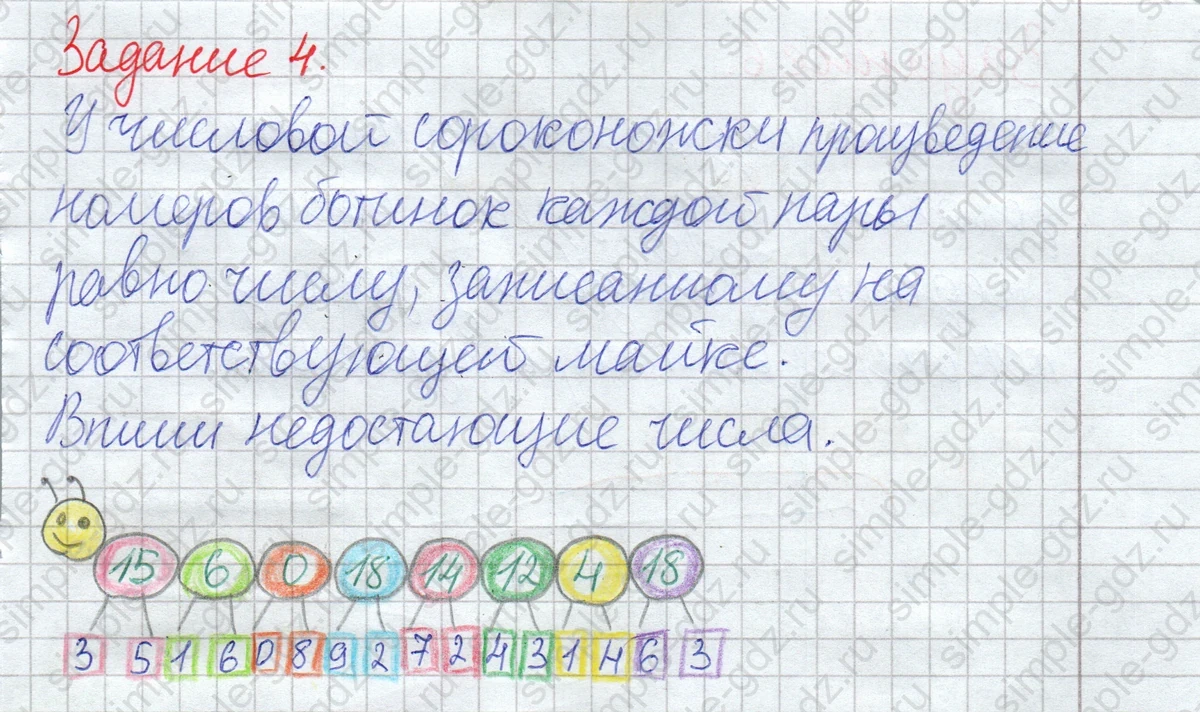 Задание 4.
У числовой сороконожки произведение
номеров ботинок каждой пары
равно числу, записанному на
соответствующей майке.
Впиши недостающие числа.
15 6 0 18 14 12 4 18
3 5 1 6 0 8 9 2 7 2 4 3 1 4 6 3
simple-gdz.ru